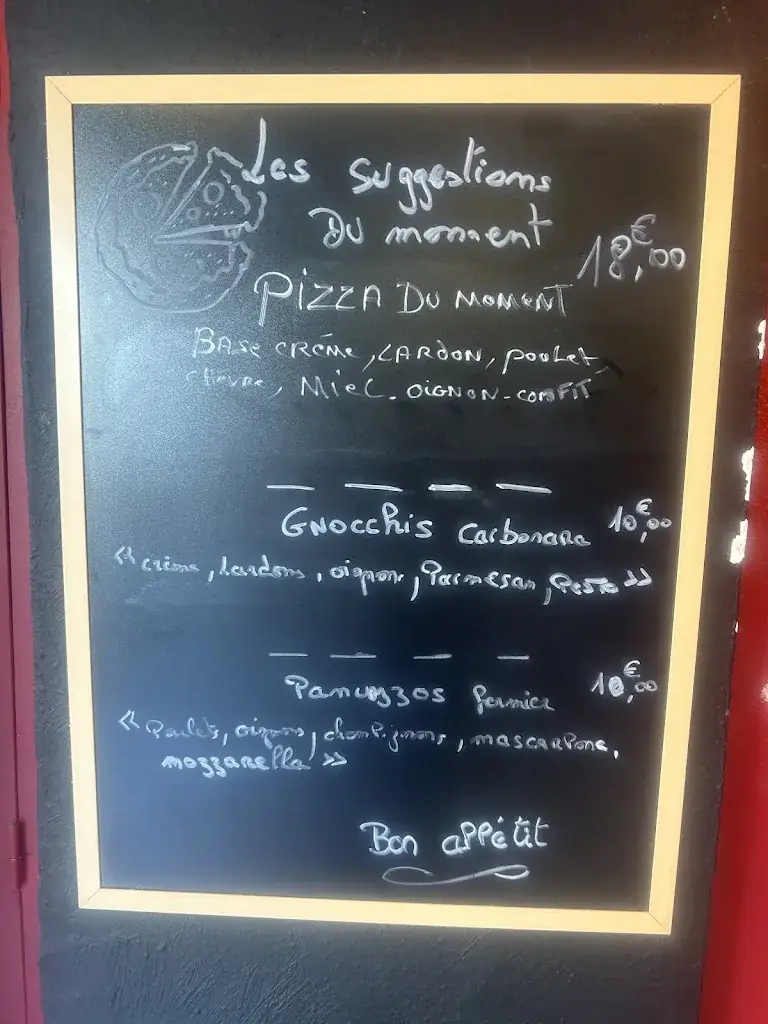 Les suggestions
Du moment
18€,00
PIZZA DU MOMENT
BASE CRÉME, LARDON, POULET,
CHEVRE, MIEL. OIGNON-COMFIT
GNOCCHIS Carbonara 10€,00
« crème, Lardons, oignons, Parmesan, Pesto »
Panuozzos fermier 10€,00
« Poulets, oignons, champignons, MASCARPONE,
mozzarella »
Bon appétit